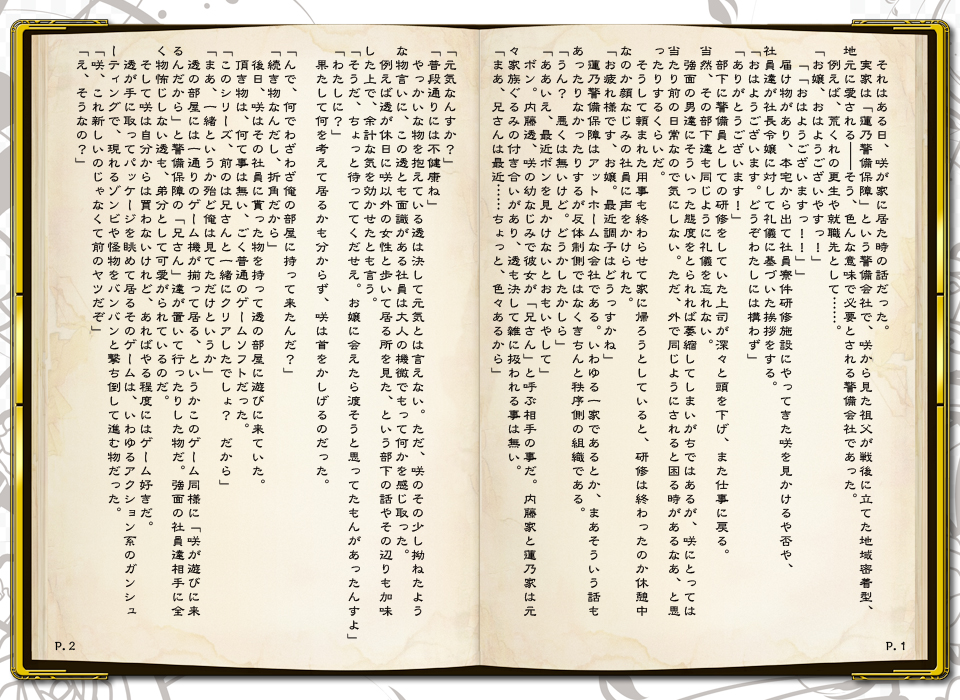 それはある日、咲が家に居た時の話だった。
実家は「蓮乃警備保障」という警備会社で、咲から見た祖父が戦後に立てた地域密着型、
地元に愛される――そう、色んな意味で必要とされる警備会社であった。
例えば、荒くれの更生や就職先として……。
「お嬢、おはようございやすっ！」
「「「おはようございます！！」」」
届け物があり、本宅から出て社員寮件研修施設にやってきた咲を見かけるや否や、
社員達が社長令嬢に対して礼儀に基づいた挨拶をする。
「おはようございます。どうぞわたしには構わず」
「ありがとうございます！」
部下に警備員としての研修をしていた上司が深々と頭を下げ、また仕事に戻る。
当然、その部下達も同じように礼儀を忘れない。
強面の男達にそういった態度をとられれば萎縮してしまいがちではあるが、咲にとっては
当たり前の日常なので気にしない。ただ、外で同じようにされると困る時があるなあ、と思
ったりするくらいだ。
そうして頼まれた用事も終わらせて家に帰ろうとしていると、研修は終わったのか休憩中
なのか顔なじみの社員に声をかけられた。
「お疲れ様です、お嬢。最近調子はどうっすかね」
蓮乃警備保障はアットホームな会社である。いわゆる一家であるとか、まあそういう話も
あったりなかったりするが反体制側ではなくきちんと秩序側の組織である。
「うん？　悪くは無いけど。どうかしたかしら」
「ああいえ、最近ボンを見かけないとおもいやして」
ボン。内藤透、咲の幼なじみで彼女が「兄さん」と呼ぶ相手の事だ。内藤家と蓮乃家は元
々家族ぐるみの付き合いがあり、透も決して雑に扱われる事は無い。
「まあ、兄さんは最近……ちょっと、色々あるから」
P.1
「元気なんすか？」
「普段通りには不健康ね」
やっかいな物を抱えている透は決して元気とは言えない。ただ、咲のその少し拗ねたよう
な物言いに、この透とも面識がある社員は大人の機微でもって何かを感じ取った。
例えば透が休日に咲以外の女性と歩いて居る所を見た、という部下の話やその辺りも加味
した上で、余計な気を効かせたとも言う。
「そうだ、ちょっと待っててくだせえ。お嬢に会えたら渡そうと思ってたもんがあったんすよ」
「わたしに？」
果たして何を考えて居るかも分からず、咲は首をかしげるのだった。
「んで、何でわざわざ俺の部屋に持って来たんだ？」
「続き物なんだし、折角だから」
後日、咲はその社員に貰った物を持って透の部屋に遊びに来ていた。
頂き物は、何て事は無い、ごく普通のゲームソフトだった。
「このシリーズ、前のは兄さんと一緒にクリアしたでしょ？　だから」
「まあ、一緒というか殆ど俺は見てただけというか」
透の部屋には一通りのゲーム機が揃って居る、というかこのゲーム同様に「咲が遊びに来
るんだから」と警備保障の「兄さん」達が置いて行ったりした物だ。強面の社員達相手に全
く物怖じしない透も、弟分として可愛がられているのだ。
そして咲は自分からは買わないけれど、あればやる程度にはゲーム好きだ。
透が手に取ってパッケージを眺めて居るそのゲームは、いわゆるアクション系のガンシュ
ーティングで、現れるゾンビや怪物をバンバンと撃ち倒して進む物だった。
「咲、これ新しいのじゃなくて前のヤツだぞ」
「え、そうなの？」
P.2